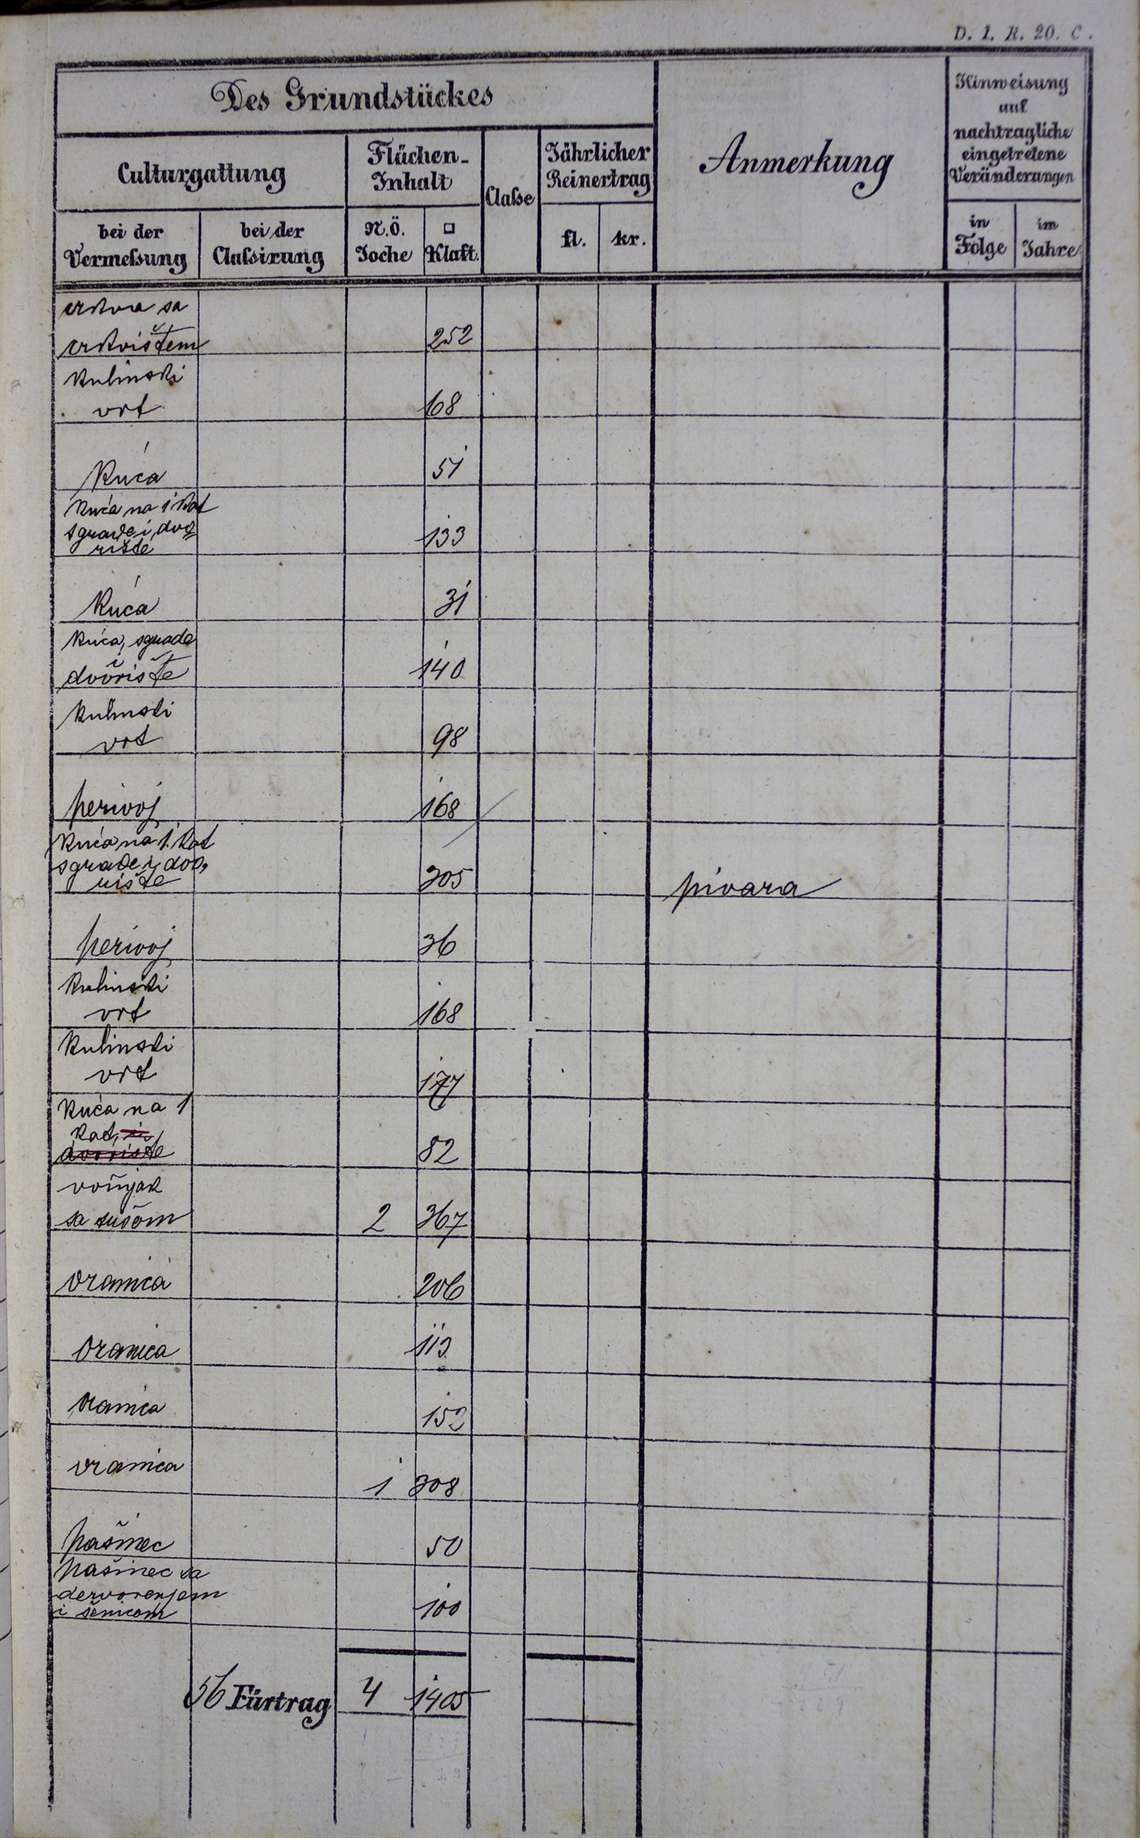 D. 1. R. 20. C.
Des Grundstückes
Culturgattung
bei der
Vermeßung
bei der
Claßirung
Flächen-
Inhalt
N.Ö.
Joche
□
Klaft.
Claße
Jährlicher
Reinertrag
fl.
kr.
Anmerkung
Hinweisung
auf
nachträgliche
eingetretene
Veränderungen
in
Folge
im
Jahre
crkva sa
crkvištem 252
kuhinski
vrt 68
kuća 51
kuća na 1 kat
sgrade i dvo-
rište 133
kuća 31
kuća, sgrade
i
dvorište 140
kuhinski
vrt 98
perivoj 168
kuća na 1. kat
sgrade i dvo-
rište 305 pivara
perivoj 36
kuhinski
vrt 168
kuhinski
vrt 177
kuća na 1
kat, i
dvorište 82
voćnjak
sa sušom 2 367
oranica 206
oranica 113
oranica 152
oranica 1 308
pašnec 50
pašnec sa
i šenicom 100
56 Fürtrag 4 1405